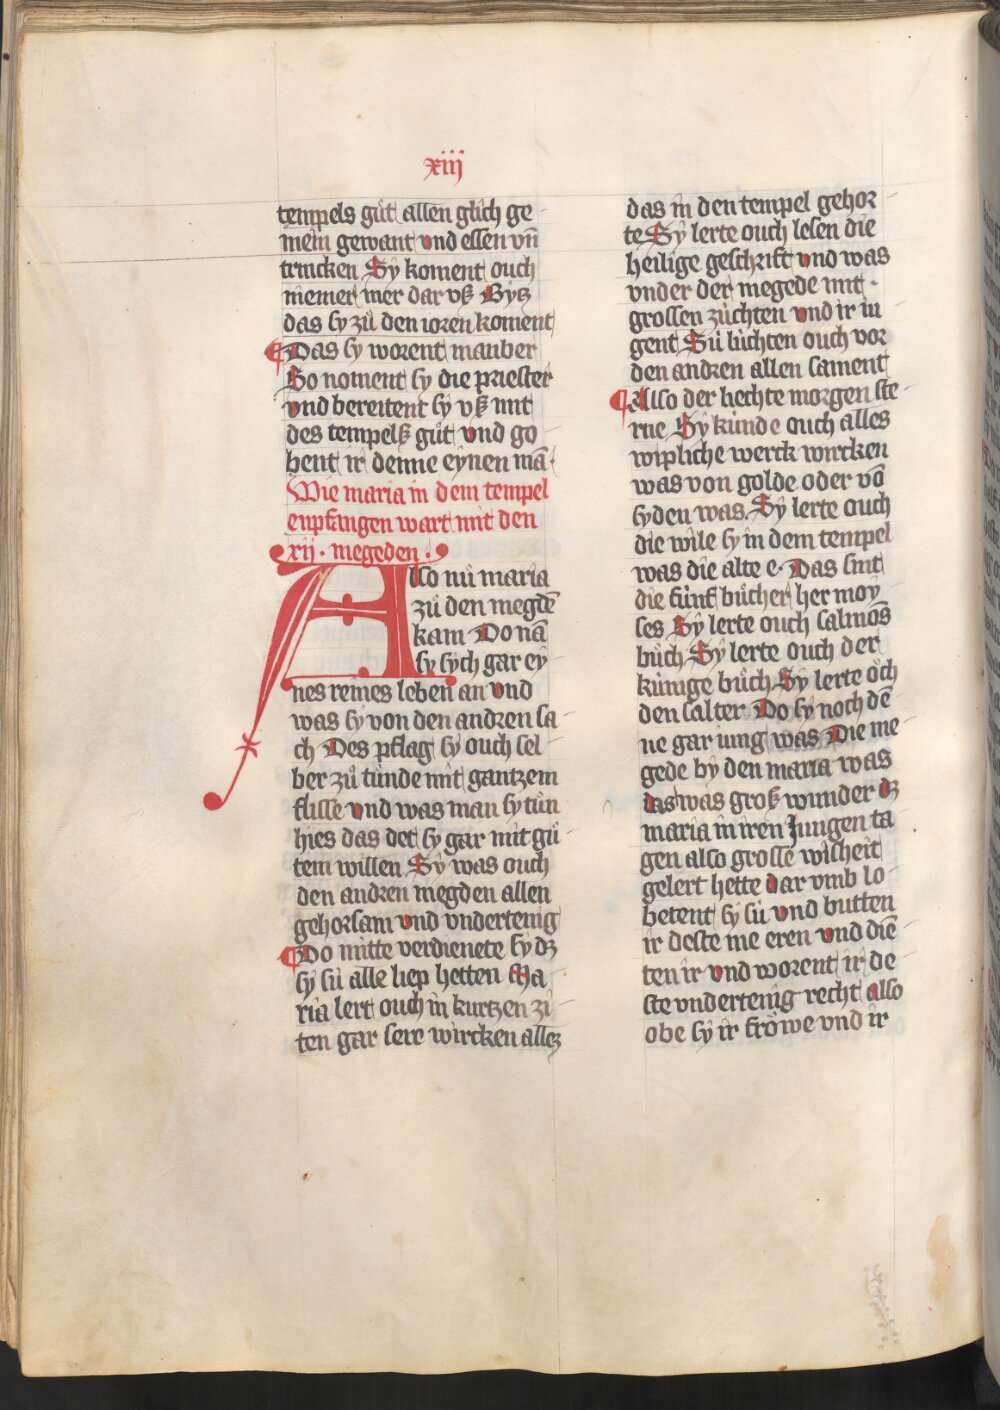 xiij
tempels gůt allen glich ge
mein gewant vnd essen vn̄
trincken Sy koment ouch
niemer mer dar vß Bytz
das sy zů den ioren koment
Das sy worent manber
So noment sy die priester
vnd bereitent sy vß mit
des tempelß gůt vnd go
bent ir denne eynen mā
Wie maria in dem tempel
enpfangen wart mit den
xij · megeden ·
Also nů maria
zů den megdē
kam Do nā
sy sych gar ey
nes reines leben an vnd
was sy von den andren sa
ch Des pflag sy ouch sel
ber zů tůnde mit gantzem
flisse vnd was man sy tůn
hies das det sy gar mit gů
tem willen Sy was ouch
den andren megden allen
gehorsam vnd vndertenig
Do mitte verdienete sy dz
sy sü alle liep hetten Ma
ria lert ouch in kurtzen zi
ten gar sere wircken allez
das in den tempel gehor
te Sy lerte ouch lesen die
heilige geschrift vnd was
vnder den megede mit
grossen zůchten vnd ir iu
gent Sü lüchten ouch vor
den andren allen sament
Also der liechte morgen ste
rne Sy kunde ouch alles
wipliche werck wircken
was von golde oder vō
syden was Sy lerte ouch
die wile sy in dem tempel
was die alte e Das sint
die fünf bücher her moy
ses Sy lerte ouch salmōs
bůch Sy lerte ouch der
künige bůch Sy lerte öch
den salter Do sy noch dē
ne gar iung was Die me
gede by den maria was
das was groß wunder dz
maria in iren Jungen ta
gen also grosse wisheit
gelert hette dar vmb lo
betent sy sü vnd butten
ir deste me eren vnd diē
ten ir vnd worent ir de
ste vndertenig recht also
obe sy ir fröwe vnd ir